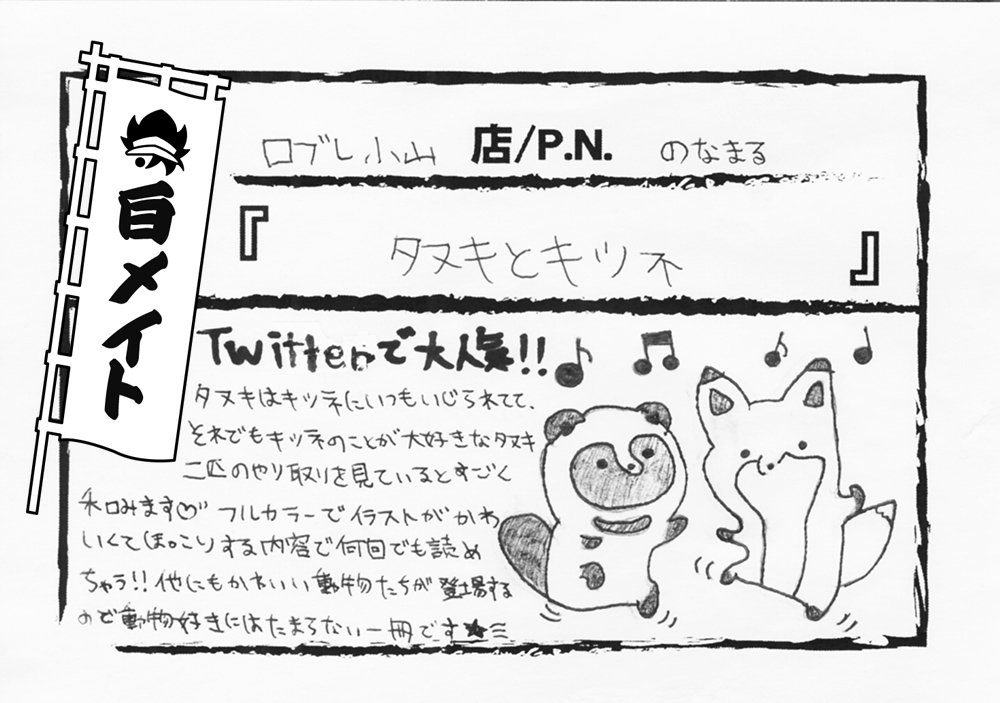 目メイト
ロブレ小山 店/P.N. のなまる
『タヌキとキツネ』
Twitterで大人気!!
タヌキはキツネにいつもいじられてて、
それでもキツネのことが大好きなタヌキ
二匹のやり取りを見ているとすごく
和みます♡" フルカラーでイラストがかわ
いくてほっこりする内容で何回でも読め
ちゃう!! 他にもかわいい動物たちが登場する
ので動物好きにはたまらない一冊です★